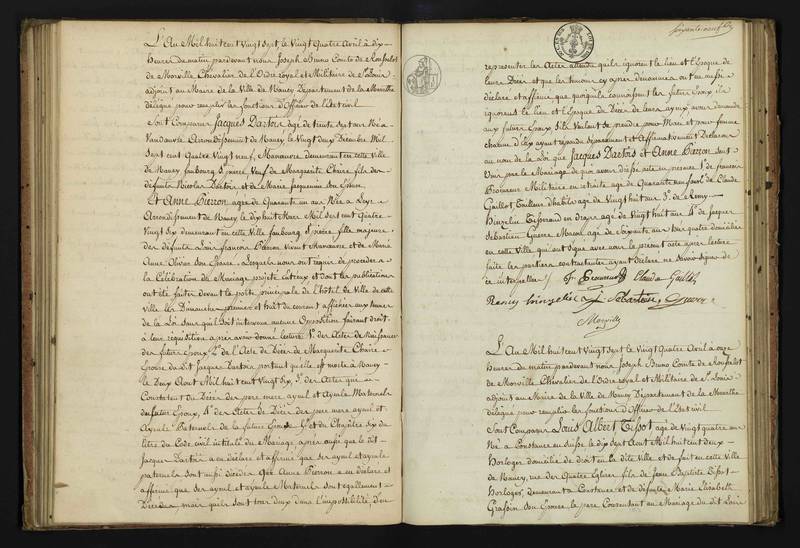 L'An Mil huit cent Vingt Sept, le Vingt Quatre Avril à dix
heures du matin pardevant nous Joseph Bruno Comte de
de Monville Chevalier de l'Ordre royal et Militaire de St Louis
adjoint au Maire de la Ville de Nancy Département de la Meurthe
délégué pour remplir les fonctions d'Officier de l'état civil
Sont Comparus Jacques Dartois âgé de trente Sept ans Né à
Vandœuvre Arrondissement de Nancy le Vingt deux Décembre Mil
Sept cent Quatre Vingt neuf, Manœuvre demeurant en cette Ville
de Nancy faubourg St pierre, Veuf de Marguerite Chaire fils des
défunts Nicolas Dartois et de Marie Jacquemin son Epouse
Et Anne Pierron agée de Quarante un ans Née à
Arrondissement de Nancy le dix huit Mars Mil Sept cent Quatre
Vingt six demeurant en cette Ville faubourg St pierre fille majeure
des défunts Louis francois Pierron Vivant Manœuvre et de Marie
Anne Olivier son Epouse. Lesquels nous ont requis de procéder à
la Célébration du Mariage projeté entreux et dont les publications
ont été faites devant la porte principale de l'hôtel de Ville de cette
Ville les Dimanches premier et huit du courant affichées aux termes
de la Loi sans qu'il soit intervenu aucune Opposition faisant droit
à leur réquisition après avoir donné lecture 1° des Actes de Naissance
des futurs Epoux 2° de l'Acte de Décès de Marguerite Chaire
Epouse du dit Jacques Dartois portant qu'elle est morte à Nancy
le Deux Aout Mil huit cent Vingt six, 3° des Actes qui
Constatent le Décès des pere mere ayeul et Ayeule Maternels
du futur Epoux, 4° des Actes de Décès des pere mere ayeul et
Ayeule Paternels de la future Epouse 5° et du Chapitre six du
titre du Code civil intitulé du Mariage après aussi que le dit
Jacques Dartois a en déclaré et affirmé que ses ayeul et ayeule
paternels sont aussi décédés Que Anne Pierron a en déclaré et
affirmé que ses ayeul et ayeule Maternels sont également
Décédés mais qu'ils sont tous deux dans l'impossibilité d'en
Soixante neuf
représenter les Actes attendu qu'ils ignorent le lieu et l'Epoque de
leurs Décès et que les témoins cy après dénommés ont en aussi
déclaré et affirmé que quoiqu'ils connaissent les futurs Epoux ils
ignorent le lieu et l'Epoque du Décès de leurs ayeux avons demandé
aux futurs Epoux s'ils Veulent se prendre pour Mari et pour femme
chacun d'eux ayant répondu séparément et Affirmativement Déclarons
au nom de la Loi que Jacques Dartois et Anne Pierron sont
Unis par le Mariage de quoi avons dressé acte en présence 1° de francois
Militaire en retraite agé de Quarante neuf ans 2° de Claude
Gaillot Tailleur d'habits agé de Vingt huit ans 3° de Remy
Hinzelin Tisserand en Draps agé de Vingt huit ans 4° de Jacques
Sébastien Maçon agé de Soixante ans tous quatre domiciliés
en cette Ville qui ont signé avec nous le présent acte après lecture
faite les parties contractantes ayant déclaré ne savoir signer de
ce interpellés
Claude Gaillot
Remy hinzelin Sébastien
Monville
L'An Mil huit cent Vingt Sept le Vingt Quatre Avril à onze
heures du matin pardevant nous Joseph Bruno Comte de
de Monville Chevalier de l'Ordre royal et Militaire de St Louis
adjoint au Maire de la Ville de Nancy Département de la Meurthe
délégué pour remplir les fonctions d'Officier de l'état civil
Sont Comparus Louis Albert Tissot agé de Vingt quatre ans
Né à Constance en Suisse le dix Sept Aout Mil huit cent deux
Horloger domicilié de droit en la dite Ville et de fait en cette Ville
de Nancy, rue des Quatre Eglises fils de Jean Baptiste Tissot
Horloger, demeurant à Constance et de défunte Marie Elisabeth
son Epouse, le pere Consentant au Mariage du dit Louis